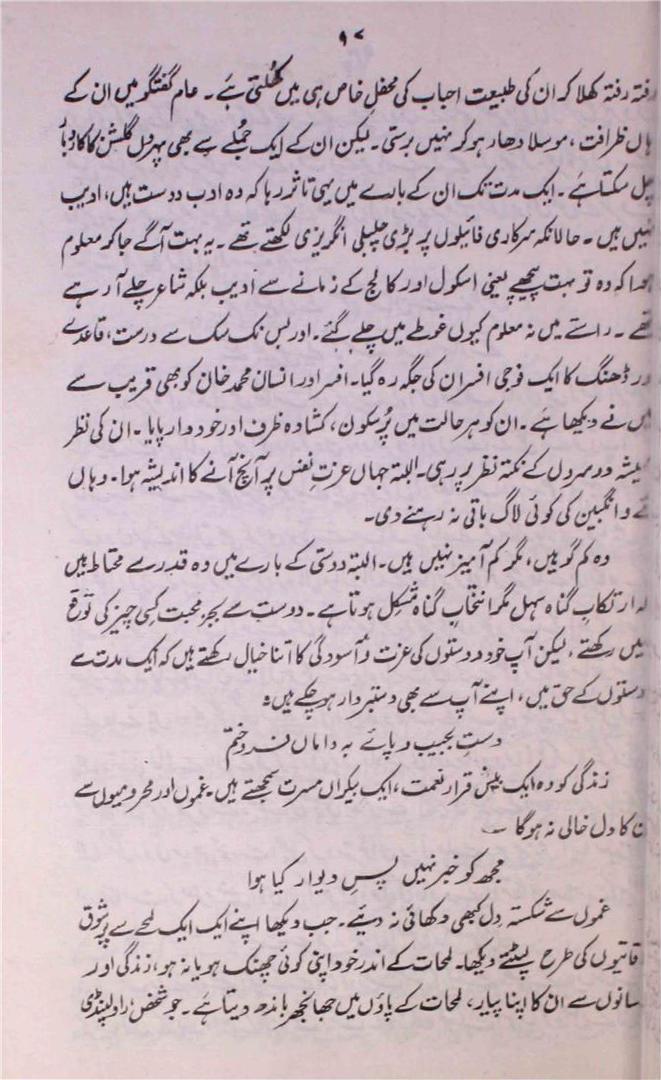 ۹۷
رفتہ رفتہ کھلا کہ ان کی طبیعت احباب کی محفلِ خاص ہی میں کھُلتی ہے۔ عام گفتگو میں ان کے
ہاں ظرافت، موسلا دھار ہو کر نہیں برستی۔ لیکن ان کے ایک جُملے سے بھی پہروں گلشن کا کاروبار
چل سکتا ہے۔ ایک مدت تک ان کے بارے میں یہی تاثر رہا کہ وہ ادب دوست ہیں، ادیب
نہیں ہیں۔ حالانکہ سرکاری فائیلوں پر بڑی چلبلی انگریزی لکھتے تھے۔ یہ بہت آگے جا کو معلوم
ہوا کہ وہ تو بہت پیچھے یعنی اسکول اور کالج کے زمانے سے ادیب بلکہ شاعر چلے آ رہے
تھے۔ راستے میں نہ معلوم کیوں غوطے میں چلے گئے۔ اور بس نک سک سے درست، قاعدے
اور ڈھنگ کا ایک فوجی افسران کی جگہ رہ گیا۔ افسر اور انسان محمد خان کو بھی قریب سے
میں نے دیکھا ہے۔ ان کو ہر حالت میں پُرسکون، کشادہ ظرف اور خود دار پایا۔ ان کی نظر
ہمیشہ دوسروں کے نکتۂ نظر پر رہی۔ البتہ جہاں عزتِ نفس پر آنچ آنے کا اندیشہ ہوا۔ وہاں
مے و انگبین کی کوئی لاگ باقی نہ رہنے دی۔
وہ کم گو ہیں، مگر کم آمیز نہیں ہیں۔ البتہ دوستی کے بارے میں وہ قدرے محتاط ہیں
کہ ارتکابِ گناہ سہل مگر انتخابِ گناہ مشکل ہوتا ہے۔ دوست سے بجز محبت کسی چیز کی توقع
نہیں رکھتے، لیکن آپ خود دوستوں کی عزت و آسودگی کا اتنا خیال رکھتے ہیں کہ ایک مدت سے
دوستوں کے حق میں، اپنے آپ سے بھی دستبردار ہو چکے ہیں؛
دستِ بجیب و پائے بہ داماں فروختم
زندگی کو وہ ایک بیش قرار نعمت، ایک بیکراں مسرت سمجھتے ہیں۔ غموں اور محرومیوں سے
ان کا دل خالی نہ ہوگا
مجھ کو خبر نہیں پسِ دیوار کیا ہوا
غموں سے شکستہ دل کبھی دکھائی نہ دیئے۔ جب دیکھا اپنے ایک ایک لمحے سے پُر شوق
ملاقاتیوں کی طرح لپٹتے دیکھا۔ لمحات کے اندر خود اپنی کوئی چھنک ہو یا نہ ہو، زندگی اور
انسانوں سے ان کا اپنا پیار، لمحات کے پاؤں میں جھانجھر باندھ دیتا ہے۔ جو شخص راولپنڈی